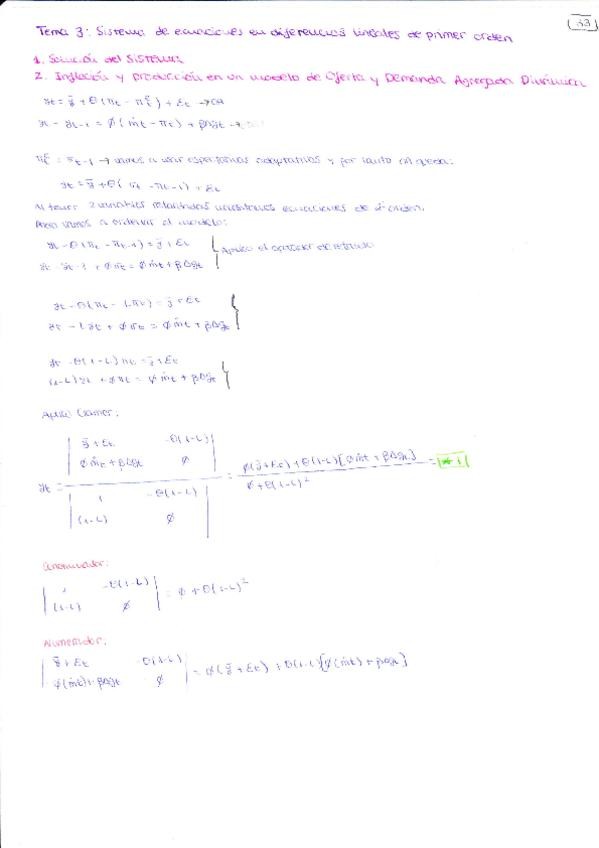 33
Tema 3: Sistema de ecuaciones en diferencias lineales de primer orden
1. Solución del sistema
2. Inflación y producción en un modelo de Oferta y Demanda Agregada Dinámica
yt = ȳ + θ(πt − πᵉt) + Ɛt → OA
yt − yt-1 = ø(ṁt − πt) + βΔgt →
πᵉt = πt-1 → vamos a usar expectativas adaptativas y por tanto nos queda:
yt = ȳ + θ(πt − πt-1) + Ɛt
Al tener 2 variables retardadas ecuaciones de 2º orden.
Ahora vamos a ordenar el modelo:
yt − θ(πt − πt-1) = ȳ + Ɛt
yt − yt-1 + øπt = øṁt + βΔgt } Aplico el operador de retardo
yt − θ(πt − Lπt) = ȳ + Ɛt
yt − Lyt + øπt = øṁt + βΔgt }
yt − θ(1−L)πt = ȳ + Ɛt
(1−L)yt + øπt = øṁt + βΔgt }
Aplico Cramer:
| ȳ + Ɛt −θ(1−L) |
| øṁt + βΔgt ø |
yt = = ø(ȳ + Ɛt) + θ(1−L)[øṁt + βΔgt] / ø + θ(1−L)²
| 1 −θ(1−L) |
| (1−L) ø |
Denominador:
| 1 −θ(1−L) |
| (1−L) ø | = ø + θ(1−L)²
Numerador:
| ȳ + Ɛt −θ(1−L) |
| ø(ṁt) + βΔgt ø | = ø(ȳ + Ɛt) + θ(1−L)[ø(ṁt) + βΔgt]